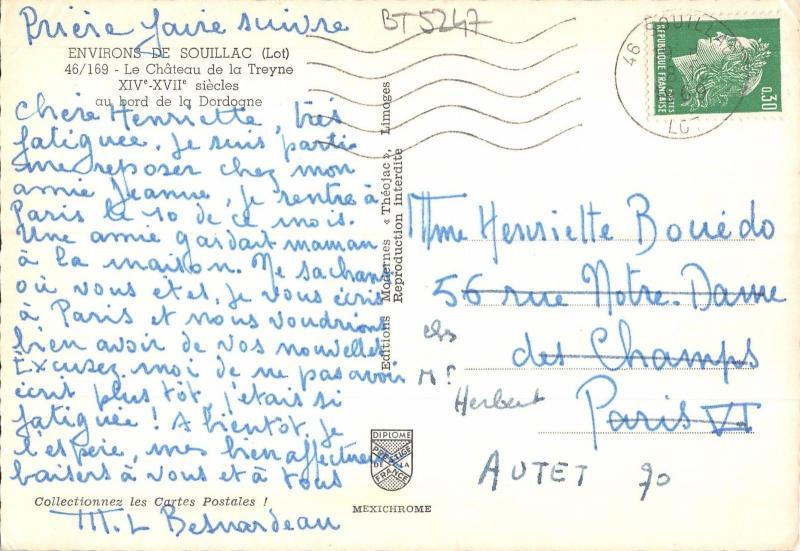 Prière faire suivre
BT5247
ENVIRONS DE SOUILLAC (Lot)
46/169 - Le Château de la Treyne
XIVe-XVIIe siècles
au bord de la Dordogne
Chère Henriette, très
fatiguée, je suis partie
me reposer chez mon
amie Jeanne, je rentre à
Paris le 10 de ce mois.
Une amie gardait maman
à la maison. Ne sachant
où vous etes, je vous écris
à Paris et nous voudrions
bien avoir de vos nouvelles
Excusez-moi de ne pas avoir
écrit plus tôt, j'étais si
fatiguée ! A bientôt, je
l'espère, mes bien affectueux
baisers à vous et à tous
Collectionnez les Cartes Postales !
M.L Besnardeau
Editions Modernes « Théojac », Limoges
Reproduction Interdite
DIPLOME
PRESTIGE
DE LA
FRANCE
MEXICHROME
46 SOUILLAC
LOT
REPUBLIQUE FRANÇAISE
POSTES
0,30
Mme Henriette Bouédo
56 rue Notre-Dame
des Champs
Paris VI
chs
Mr
Herbert
AUTET 70